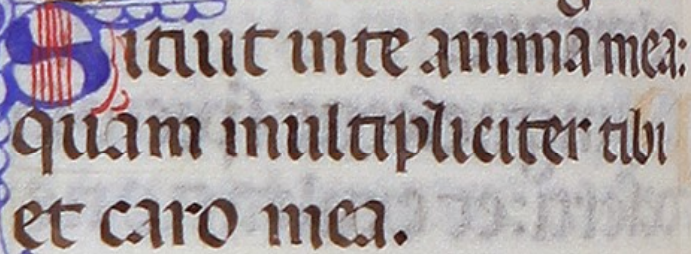 Sitiuit inte anima mea:
quam multipliciter tibi
et caro mea.